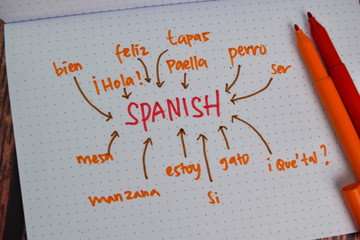 tapas
feliz
perro
bien
¡Hola!
Paella
ser
SPANISH
mesa
estoy
gato
¡ Que'tal ?
manzana
Si